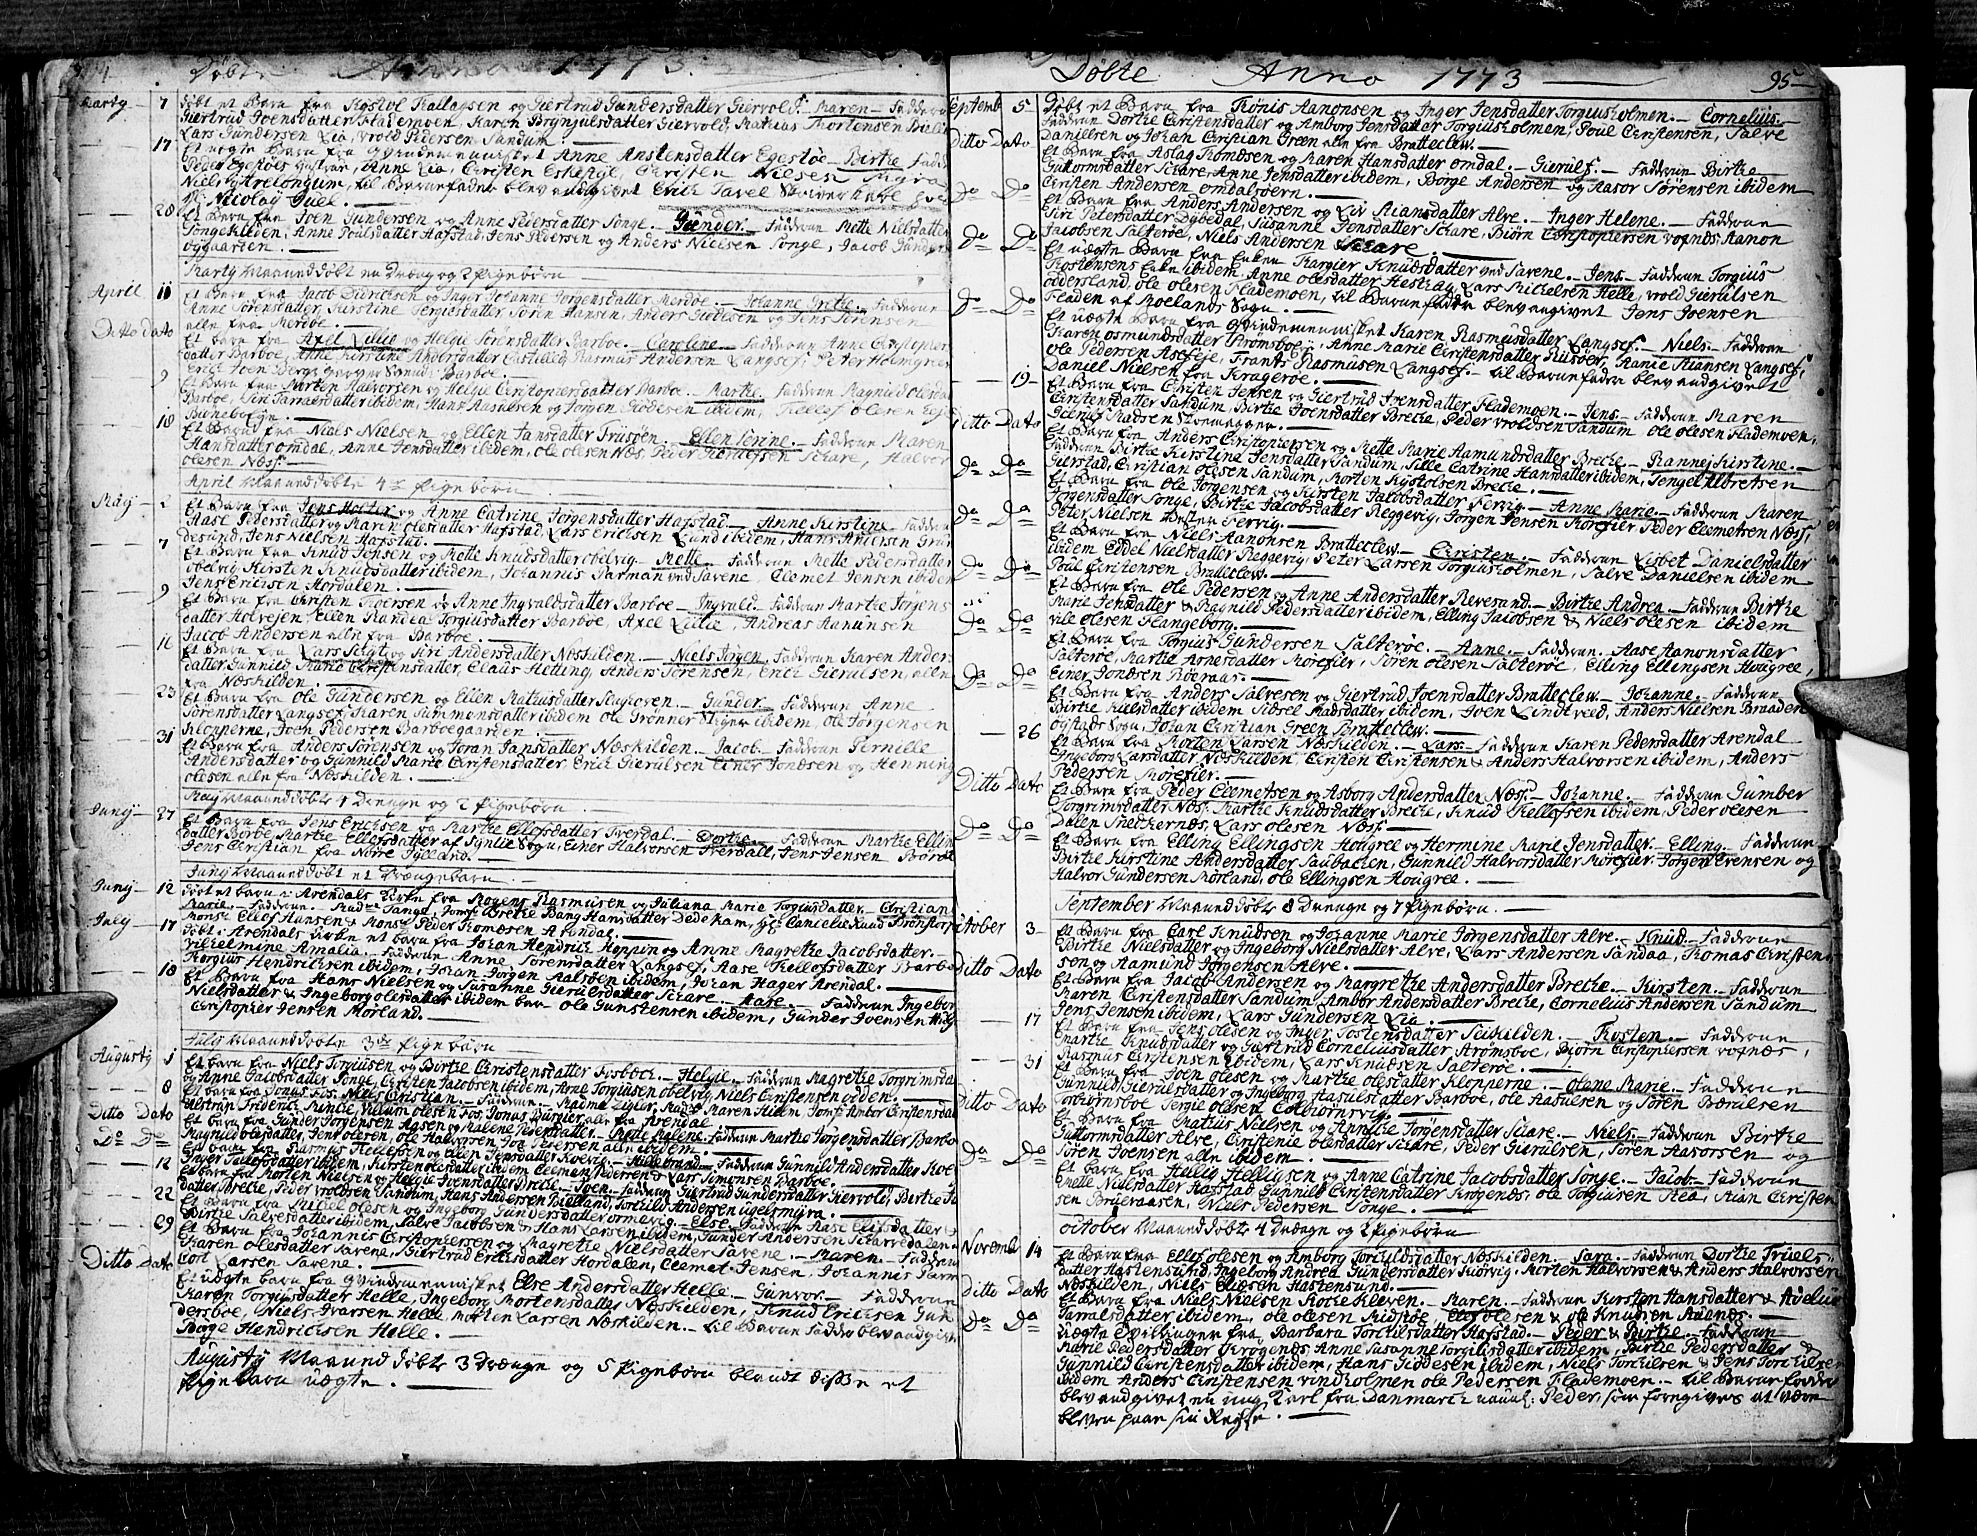 94
Døbte Anno 1773.
Marty 7 døbt et Barn fra Kostol Kallagsen og Giertrud Gundersdatter Giervold. Maren. Faddrene
Giertrud Joensdatter Flademoen, Karen Brynjulsdatter Giervold, Mathias Thortensen
Lars Gundersen Lia, Wrold Pedersen Sandum.
17 Et uægte Barn fra Qvindemennisket Anne Anstensdatter Egestøe. Birthe. Fadd.
Peder Egestøes hustrue, Anne Lia, Christen Eskesyl, Christen Nielsen
Niels til Barnefader blev angivet
Nicolay Juel.
28 Et Barn fra Joen Gundersen og Anne Pedersdatter Songe. Gunder. Faddrene Mette Nielsdatter
Songekilden, Anne Poulsdatter Hafstad, Jens Pedersen og Anders Nielsen Songe, Jacob Gunders
Marty Maaned døbt en Dreng og 2 Pigebørn
April 11 Et Barn fra Jacob Didricksen og Inger Johanne Jørgensdatter Merdøe. Johanne Grethe. Faddrene
Anne Sørensdatter, Kirstine Tergiesdatter, Søren Hansen, Anders Giødesen og Jens Sørensen
alle fra Merdøe.
Ditto Dato Et barn fra Axel Lillie og Helgie Sørensdatter Barboe. Caroline. Faddrene Anne Christophers
datter Barboe, Anne Kirstine Andersdatter Castilled, Rasmus Andersen Langsef, Peter Holmgreen
Barboe.
9 Et Barn fra Morten Halvorsen og Helgie Christophersdatter Barboe. Marthe. Faddrene Magnild Olesdat
Barboe, Siri Samuelsdatter ibidem, Hans Aasulsen og Jørgen Giødesen ibidem, Kellef Olesen
18 Et Barn fra Niels Nielsen og Ellen Jansdatter Trüsøen. Ellen Serine. Faddrene Maren
Hansdatter Omdal, Anne Jensdatter ibidem, Ole Olesen Næs, Peder Kierulfsen Schare, Halvor
Olesen Næss.
April Maaned døbte 4re Pigebørn
May 2 Et Barn fra Jens Holter og Anne Catrine Jørgensdatter Hafstad. Anne Kirstine. Faddrene
Aase Pedersdatter og Maren Olesdatter Hafstad, Lars Erichsen Lund ibidem, Hans Andersen Grün
desund, Jens Nielsen Hafstad.
7 Et Barn fra Knud Jensen og Mette Knudsdatter Obelvig. Mette. Faddrene Mette Pedersdatter
Obelvig, Kirsten Knudsdatter ibidem, Johannis Farman ved Savene, Clemet Jensen ibidem
Jens Erichsen Hordalen.
9 Et Barn fra Christen Thoersen og Anne Ingvaldsdatter Barboe. Ingvald. Faddrene Marthe Jørgens
datter Asevejen, Ellen Randea Torgiusdatter Barboe, Axel Lillie, Andreas Aanunsen
Jacob Andersen alle fra Barboe.
16 Et Barn fra Lars Selgt og Siri Andersdatter Neskilden. Niels Jørgen. Faddrene Karen Anders
datter, Gunnild Marie Christensdatter, Claus Helting, Anders Sørensen, Erich Gierulsen, alle
fra Neskilden.
23 Et Barn fra Ole Gundersen og Ellen Mathisdatter Slagsøen. Gunder. Faddrene Anne
Sørensdatter Langsef, Karen Simmonsdatter ibidem, Ole Grønner Skyer ibidem, Ole Jørgensen
Klopperne, Joen Pedersen Barboegaarden.
31 Et Barn fra Anders Sørensen og Joran Jansdatter Næskilden. Jacob. Faddrene Pernille
Andersdatter og Gunnild Marie Christensdatter, Erich Gierulsen, Einer Jonæsen og Henning
Olesen alle fra Neskilden.
May Maaned døbte 4 Drenge og 2 Pigebørn.
Juny 27 Et Barn fra Jens Erichsen og Marthe Ellefsdatter Fverdal. Dorthe. Faddrene Marthe Elling
datter Birbe, Marthe Ellefsdatter af Synlie Sogn, Einer Halvorsen Fverdall, Jens Jensen
Jens Christian fra Nørre Jylland.
Juny Maaned døbt et Drængebarn
Juny 12 døbt et barn i Arendals Kirke fra Mogens Rasmusen og Juliana Marie Torgiusdatter. Christian
Marie. Faddrene Mons. Ellef Hansen, Mons. Peder Thomæsen Arendal.
July 17 døbt i Arendals Kirke et barn fra Johan Hendrich Heppin og Anne Magrethe Jacobsdatter.
Vilhelmine Amalia. Faddrene Anne Sørensdatter Langsef, Aase Kellefsdatter Barboe
Torgius Hendrichsen ibidem, Johan Jørgen Aalsøen ibidem, Johan Hager Arendal.
18 Et Barn fra Hans Nielsen og Susanne Gierulsdatter Schare. Aase. Faddrene Ingebor
Nielsdatter & Ingeborg Olesdatter ibidem, Ole Gunstensen ibidem, Gunder Joensen
Christopher Jensen Morland.
July Maaned døbte 3de Pigebørn
Augusty 1 Et barn fra Niels Torgiusen og Birthe Christensdatter Fosboch. Helgie. Faddrene Magrethe Torgrimsdat
og Anne Jacobsdatter Songe, Christen Jacobsen ibidem, Arne Torgiusen Obelvig, Niels Christensen Odden.
8 Et barn fra Jonas Fos. Niels Christian. Faddrene Madme Zigler, Mad. Maren Hilem, Jomf. Ambor Christensdat
Fos, Jonas Bürgier alle fra Arendal.
Ditto Dato Et barn fra Gunder Jørgensen Aasen og Malene Pedersdatter. Mette Malene. Faddrene Marthe Jørgensdatter Barboe
Magnild Olesdatter, Jens Olesen, Ole Halvorsen, Joe Pedersen alle ibidem.
Do Do Et barn fra Rasmus Kellefsen og Ellen Jensdatter Koevig. Hillebrand. Faddrene Gunnild Andersdatter Koe
Inger Tallefsdatter ibidem, Kirsten Olesdatter ibidem, Clemen Pedersen & Lars Simonsen Barboe.
12 Et barn fra Morten Nielsen og Helgie Joensdatter Breche. Joen. Faddrene Giertrud Gundersdatter Giervold, Birthe
datter Breche, Peder Wroldsen Sandum, Hans Andersen Bieland, Torchild Andersen Ugelsmyra.
22 Et Barn fra Michel Olesen og Ingeborg Gundersdatter Ormevig. Else. Faddrene Aase Elifsdatter
Birthe Salvesdatter ibidem, Salve Jacobsen & Hans Larsen ibidem, Gunder Andersen Scharredalen.
29 Et Barn fra Johannis Christophersen og Magrethe Nielsdatter Savene. Maren. Faddrene
Karen Olesdatter Savene, Giertrud Erichsdatter Hordalen, Clemet Jensen, Johannis Farm
Cort Larsen Savene.
Ditto Dato Et uægte barn fra Qvindemennisket Else Andersdatter Helle. Gunvor. Faddrene
Karen Torgiusdatter Helle, Ingeborg Mortensdatter Neskilden, Knud Erichsen Gun
dersboe, Niels Ivarsen Helle, Morten Larsen Neskilden. til Barne Fadder blev angiven
Børge Hendrichsen Helle.
Augusty Maaned døbte 3 Drænge og 5 Pigebørn blandt disse et
Pigebarn uægte.
Døbte Anno 1773 95
Septemb 5 døbt et Barn fra Thønis Aanonsen og Inger Jensdatter Torgiusholmen. Cornelius.
Faddrene Dorthe Christensdatter og Amborg Jensdatter Torgiusholmen, Poul Christensen, Salve
Danielsen og Johan Christian Green alle fra Bratteclev.
Ditto Dato Et Barn fra Aslag Thomæsen og Maren Hansdatter Omdal. Gierulf. Faddrene Birthe
Guttormsdatter Schare, Anne Jensdatter ibidem, Børge Andersen og Aasor Sørensen ibidem
Christen Andersen Omdalsøern.
Do Do Et Barn fra Anders Andersen og Liv Stiansdatter Alve. Inger Helene. Faddrene
Siri Petersdatter Dybedal, Susanne Jensdatter Schare, Biørn Christophersen Vognæs, Aanon
Jacobsen Salterøe, Niels Andersen Schare
Do Do Et uægte Barn fra Enken Targier Knudsdatter ved Savene. Jens. Faddrene Torgius
Thostensens Enke ibidem, Anne Olesdatter Hesthag, Lars Michelsen Helle, Wrold Gierulsen
Oddersland, Ole Olesen Flademoen, til Barnefader blev angivet Jens Joensen
Fladen af Moelands Sogn.
Do Do Et uægte Barn fra Qvindemennisket Karen Rasmusdatter Langsef. Niels. Faddrene
Karen Osmundsdatter Strømsboe, Anne Marie Christensdatter Riisøer, Ranie Stiansen Langsef,
Ole Pedersen Asefeje, Frants Rasmusen Langsef. til Barnefader blev angivet
Daniel Nielsen fra Kragerøe.
19 Et Barn fra Christen Jensen og Giertrud Svensdatter Flademoen. Jens. Faddrene Maren
Christensdatter Sandum, Birthe Joensdatter Breche, Peder Wroldsen Sandum, Ole Olesen Flademoen,
Gierulf Madsen Stoemeggen.
Ditto Dato Et Barn fra Anders Christophersen og Mette Marie Aamundsdatter Breche. Rannej Kirstine.
Faddrene Birthe Kirstine Jensdatter Sandum, Sille Catrine Hansdatter ibidem, Tengel Albretsen
Gierstad, Christian Olesen Sandum, Morten Kystolsen Breche.
Do Do Et Barn fra Ole Jørgensen og Kirsten Jacobsdatter Fervig. Anne Marie. Faddrene Karen
Jørgensdatter Songe, Birthe Jacobsdatter Reggevig, Jørgen Jensen Morefier, Peder Clemetsen Næss,
Peter Nielsen Fervig.
Do Do Et Barn fra Niels Aanonsen Bratteclev. Christen. Faddrene Lisbet Danielsdatter
ibidem, Eddel Nielsdatter Reggevig, Peter Larsen Torgiusholmen, Salve Danielsen ibidem
Poul Christensen Bratteclev.
Do Do Et Barn fra Ole Pedersen og Anne Andersdatter Revesand. Birthe Andrea. Faddrene Birthe
Marie Jensdatter & Ragnild Pedersdatter ibidem, Elling Jacobsen & Niels Olesen ibidem
vile Olesen Flangeborg.
Do Do Et Barn fra Torgius Gundersen Salterøe. Anne. Faddrene. Aase Aanonsdatter
Salterøe, Marthe Arnesdatter Morefier, Søren Olesen Salterøe, Elling Ellingsen Hougree,
Einer Jonæsen Boeraas.
Do Do Et Barn fra Anders Salvesen og Giertrud Joensdatter Bratteclev. Johanne. Faddrene
Birthe Nielsdatter ibidem, Sidsel Madsdatter ibidem, Joen Lindtveed, Anders Nielsen Braaden
Ogstads Sogn, Johan Christian Green Bratteclev.
26 Et Barn fra Morten Larsen Neskilden. Lars. Faddrene Karen Pedersdatter Arendal
Ingeborg Larsdatter Neskilden, Christen Christensen & Anders Halvorsen ibidem, Anders
Pedersen Morefier.
Ditto Dato Et Barn fra Peder Clemetsen og Asborg Andersdatter Næss. Johanne. Faddrene Gumber
Torgrimsdatter Næs, Marthe Knudsdatter Breche, Knud Kellefsen ibidem, Peder Olesen
Dalen Snechernæs, Lars Olesen Næss.
Do Do Et Barn fra Elling Ellingsen Hougree og Hermine Marie Jensdatter. Elling. Faddrene
Birthe Kirstine Andersdatter Saubachen, Gunnild Halvorsdatter Morefier, Jørgen Evensen og
Halvor Gundersen Morland, Ole Ellingsen Hougree.
September Maaned døbte 8 Drenge og 7 Pigebørn.
October 3 Et Barn fra Carl Knudsen og Johanne Marie Jørgensdatter Alve. Knud. Faddrene
Birthe Nielsdatter og Ingeborg Nielsdatter Alve, Lars Andersen Sandaa, Thomas Christen
sen og Aamund Jørgensen Alve.
Ditto Dato Et Barn fra Jacob Andersen og Margrethe Andersdatter Breche. Kirsten. Faddrene
Maren Christensdatter Sandum, Ambor Andersdatter Breche, Cornelius Andersen Sandum
Jens Jensen ibidem, Lars Gundersen Lia.
17 Et Barn fra Jens Olesen og Inger Tostensdatter Seikilden. Thosten. Faddrene
Marthe Knudsdatter og Giertrud Corneliusdatter Strømsboe, Biørn Christophersen Vognæs,
Rasmus Christensen ibidem, Lars Knudsen Salterøe.
31 Et Barn fra Joen Olesen og Marthe Olesdatter Klopperne. Olene Marie. Faddrene
Gunnild Gierulsdatter og Ingeborg Aasulsdatter Barboe, Ole Aasulsen og Søren Bærulsen
Colbiornsboe, Tergie Olesen Colbiornsvig.
Ditto Dato Et Barn fra Mathis Nielsen og Annichen Torgensdatter Schare. Niels. Faddrene Birthe
Guttormsdatter Alve, Christenie Olesdatter Schare, Peder Gierulsen, Søren Aasorsen og
Søren Joensen alle ibidem.
Do Do Et barn fra Hellig Helligsen og Anne Catrine Jacobsdatter Songe. Jacob. Faddrene
Mette Nielsdatter Hafstad, Gunnild Christensdatter Krøgenes, Ole Torgiusen Thea, Stian Christen
sen Bruevaasen, Niels Pedersen Songe.
October Maaned døbte 4 Drænge og 2 Pigebørn
Novemb 14 Et Barn fra Ellef Olesen og Amborg Torchildsdatter Neskilden. Sara. Faddrene Dorthe Truels
datter Hastensund, Ingeborg Andrea Gundersdatter Kiorvig, Morten Halvorsen & Anders Halvorsen
Neskilden, Niels Ellefsen Hastensund.
Ditto Dato Et Barn fra Niels Nielsen Kochekleven. Maren. Faddrene Kirsten Hansdatter &
Samelsdatter ibidem, Ole Olesen Kudskoe, Elef Olesen & Ole Knudsen Aulnæs.
Do Do uægte Tvillinger fra Barbara Torchilsdatter Hafstad. Peder & Birthe. Faddrene
Marie Pedersdatter Krogenæs, Anne Susanne Torgilisdatter ibidem, Birthe Pedersdatter &
Gunnild Christensdatter ibidem, Hans Giødesen ibidem, Niels Torchilsen & Jens Torchilsen
ibidem, Anders Christensen Vindholmen, Ole Pedersen Flademoen. til Barnefader
blev angivet en ung Karl fra Danmarch navnl: Peder, som foregives at være
bleven paa sin Reyse.